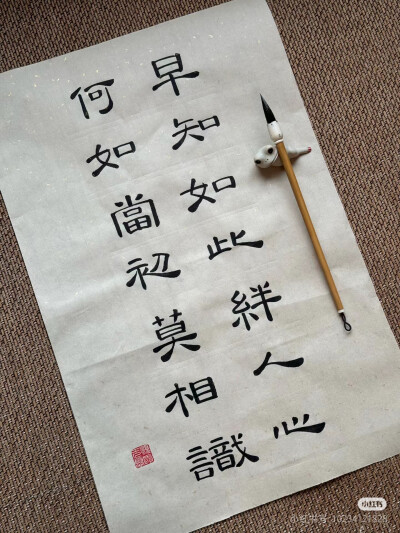 早知如此絆人心
何如當初莫相識
小红书